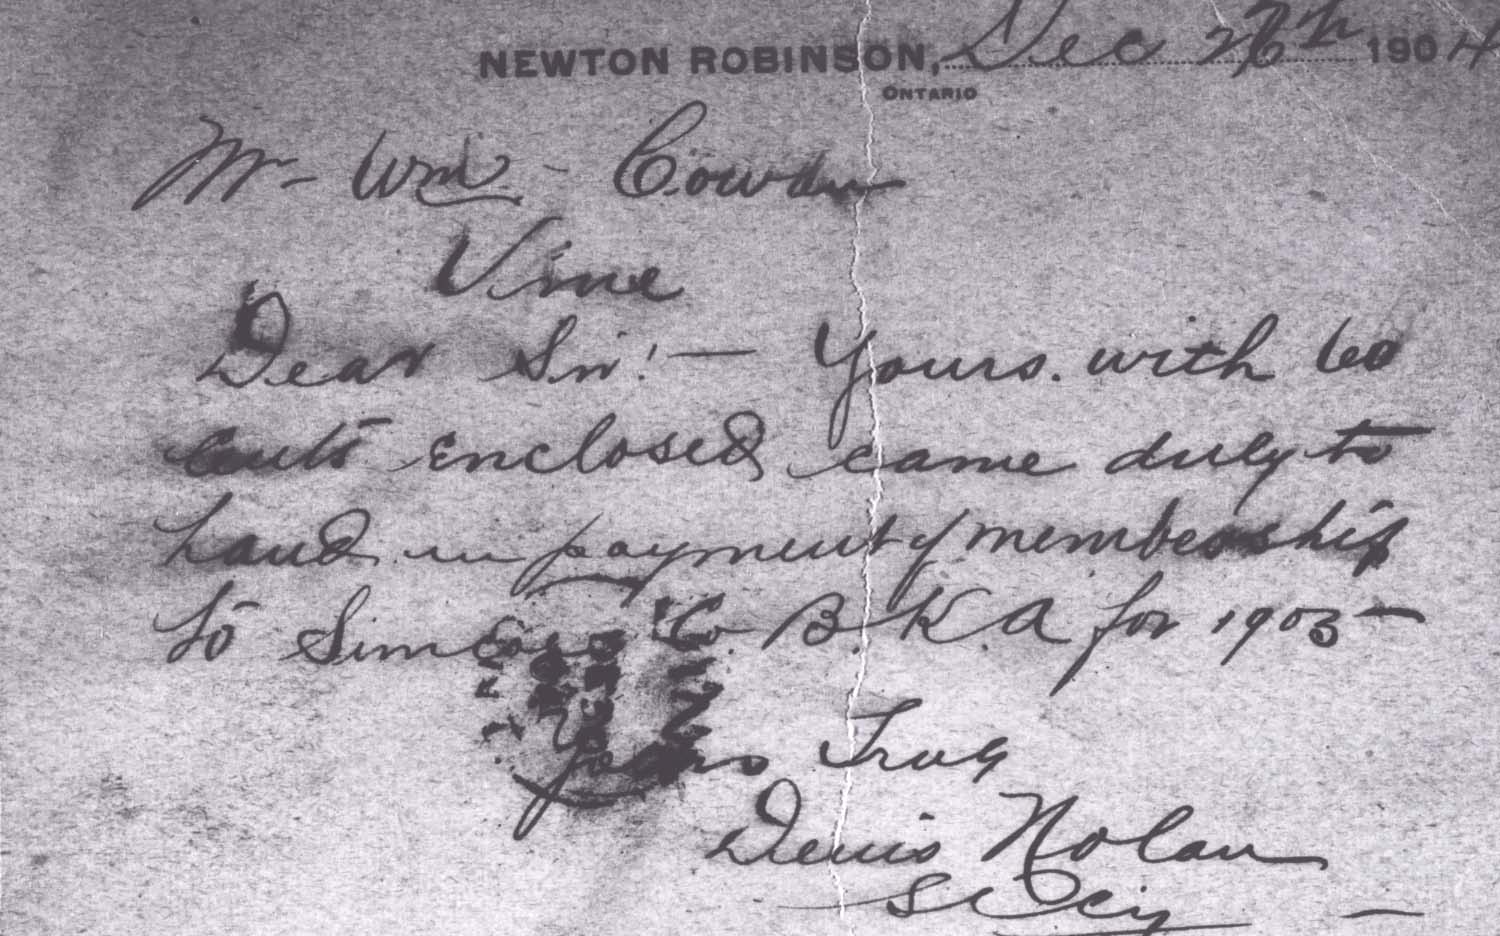 NEWTON ROBINSON, Dec 26th 1904
ONTARIO
Mr - Wm - Cowan
Vine
Dear Sir! — Yours. with 60
cents enclosed came duly to
hand in payment of membership
to Simcoe Co. B. K. A for 1905 —
Yours Truly
Denis Nolan
Secy —